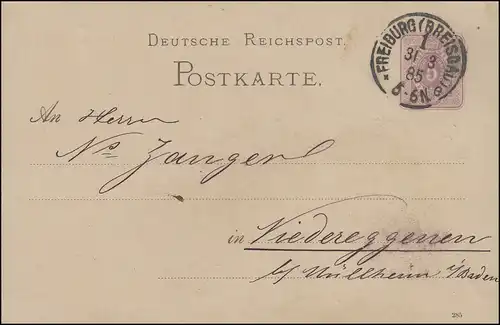 DEUTSCHE REICHSPOST.
POSTKARTE.
* FREIBURG (BREISGAU) *
1
31 3
85
5-6N.
An Herrn
Zangerl
in Niedereggenen
b/ Müllheim i/Baden
285